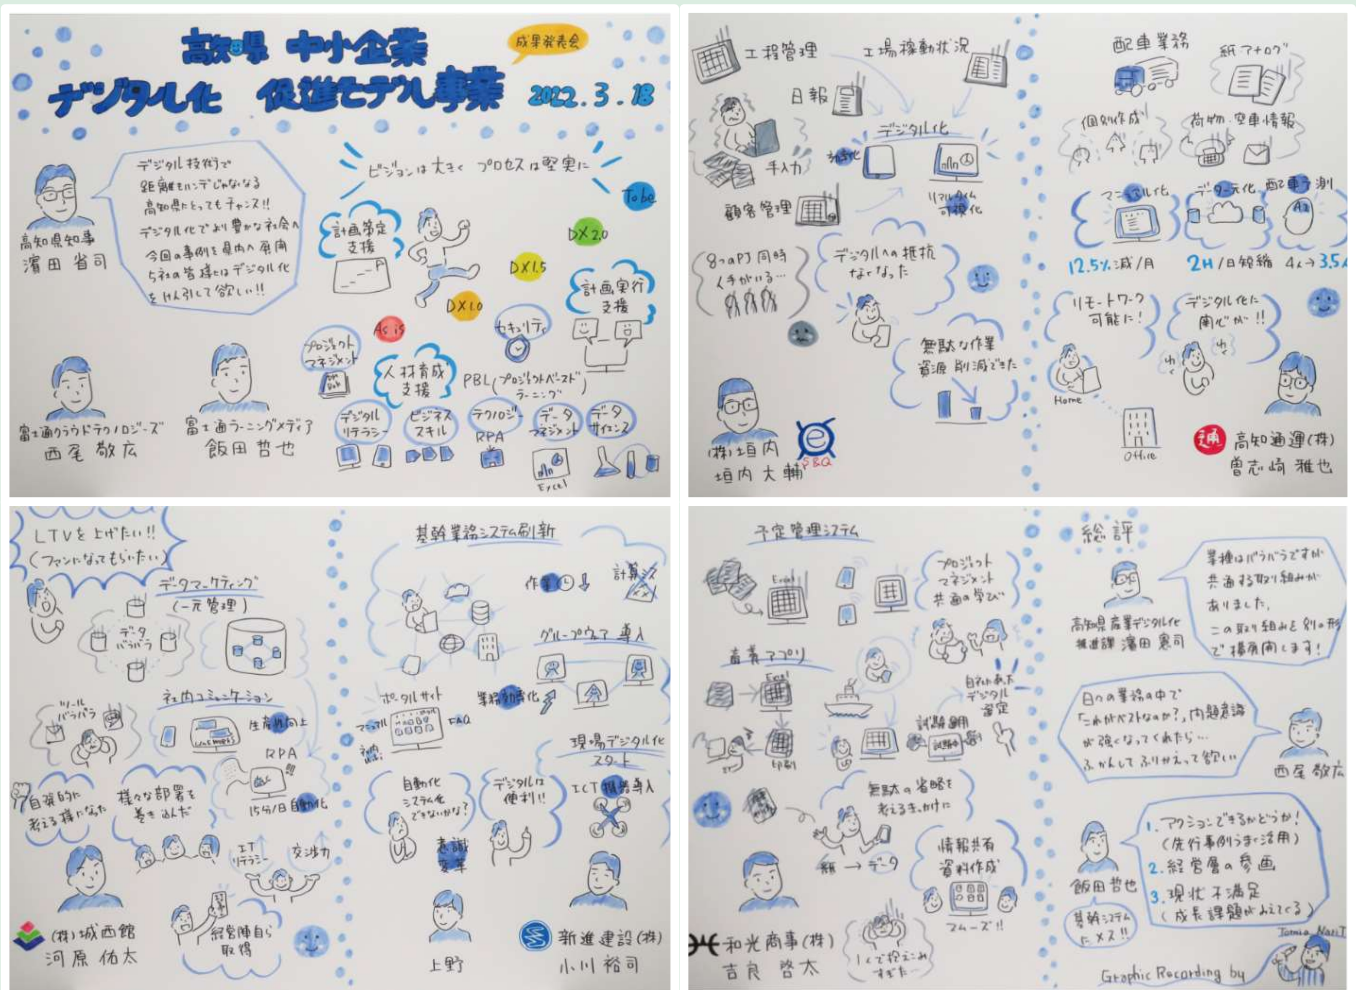 高知県 中小企業
成果発表会
デジタル化 促進モデル事業 2022.3.18
デジタル技術で
距離もハンデじゃなくなる
高知県にとってもチャンス!!
デジタル化でより豊かな社会へ
今回の事例を県内へ展開
5社の皆様にはデジタル化
をけん引して欲しい!!
高知県知事
濵田 省司
ビジョンは大きく プロセスは堅実に
To be
DX2.0
DX1.5
DX1.0
As is
計画策定
支援
計画実行
支援
セキュリティ
プロジェクト
マネジメント
人材育成
支援
PBL(プロジェクトベースド
ラーニング)
デジタル
リテラシー
ビジネス
スキル
テクノロジー
RPA
データ
マネジメント
Excel
データ
サイエンス
富士通クラウドテクノロジーズ
西尾 敬広
富士通ラーニングメディア
飯田 哲也
工程管理
工場稼動状況
日報
手入力
顧客管理
デジタル化
自動化
リアルタイム
可視化
8つのPJ同時
人手がいる…
デジタルへの抵抗
なくなった
無駄な作業
資源 削減できた
(株)垣内
垣内 大輔
e
S&Q
配車業務
紙アナログ
個別作成
荷物・空車情報
マニュアル化
データ一元化
配車予測
AI
12.5%減/月
2H/日短縮
4人→3.5人
リモートワーク
可能に!
デジタル化に
関心が!!
わく
わく
Home
Office
通
高知通運(株)
曽志崎 雅也
LTVを上げたい!!
(ファンになってもらいたい)
データマーケティング
(一元管理)
データ
バラバラ
社内コミュニケーション
ツール
バラバラ
生産性向上
RPA
15分/日自動化
自発的に
考える様になった
様々な部署を
巻き込んだ
IT
リテラシー
交渉力
経営陣自ら
取得
(株)城西館
河原 佑太
基幹業務システム刷新
作業
グループウェア導入
ポータルサイト
マニュアル
FAQ
業務自動化
現場デジタル化
スタート
自動化
システム化
できないかな?
デジタルは
便利!!
ICT機器導入
意識
変革
上野
新進建設(株)
小川 裕司
予定管理システム
Excel
プロジェクト
マネジメント
共通の学び
畜養アプリ
Excel
印刷
自社にあった
デジタル
選定
試験運用
無駄の省略を
考えるきっかけに
紙→データ
情報共有
資料作成
スムーズ!!
1人で抱えこみ
すぎた…
和光商事(株)
吉良 啓太
総評
業種はバラバラですが
共通する取り組みが
ありました。
この取り組みを別の形
で横展開します!
高知県産業デジタル化
推進課 濵田 憲司
日々の業務の中で
「これがベストなのか?」問題意識
が強くなってくれたら…
ふかんしてふりかえって欲しい
西尾 敬広
1. アクションできるかどうか!
(先行事例うまく活用)
2. 経営層の参画
3. 現状不満足
(成長課題がみえてくる)
飯田 哲也
基幹システム
にメス!!
Graphic Recording by